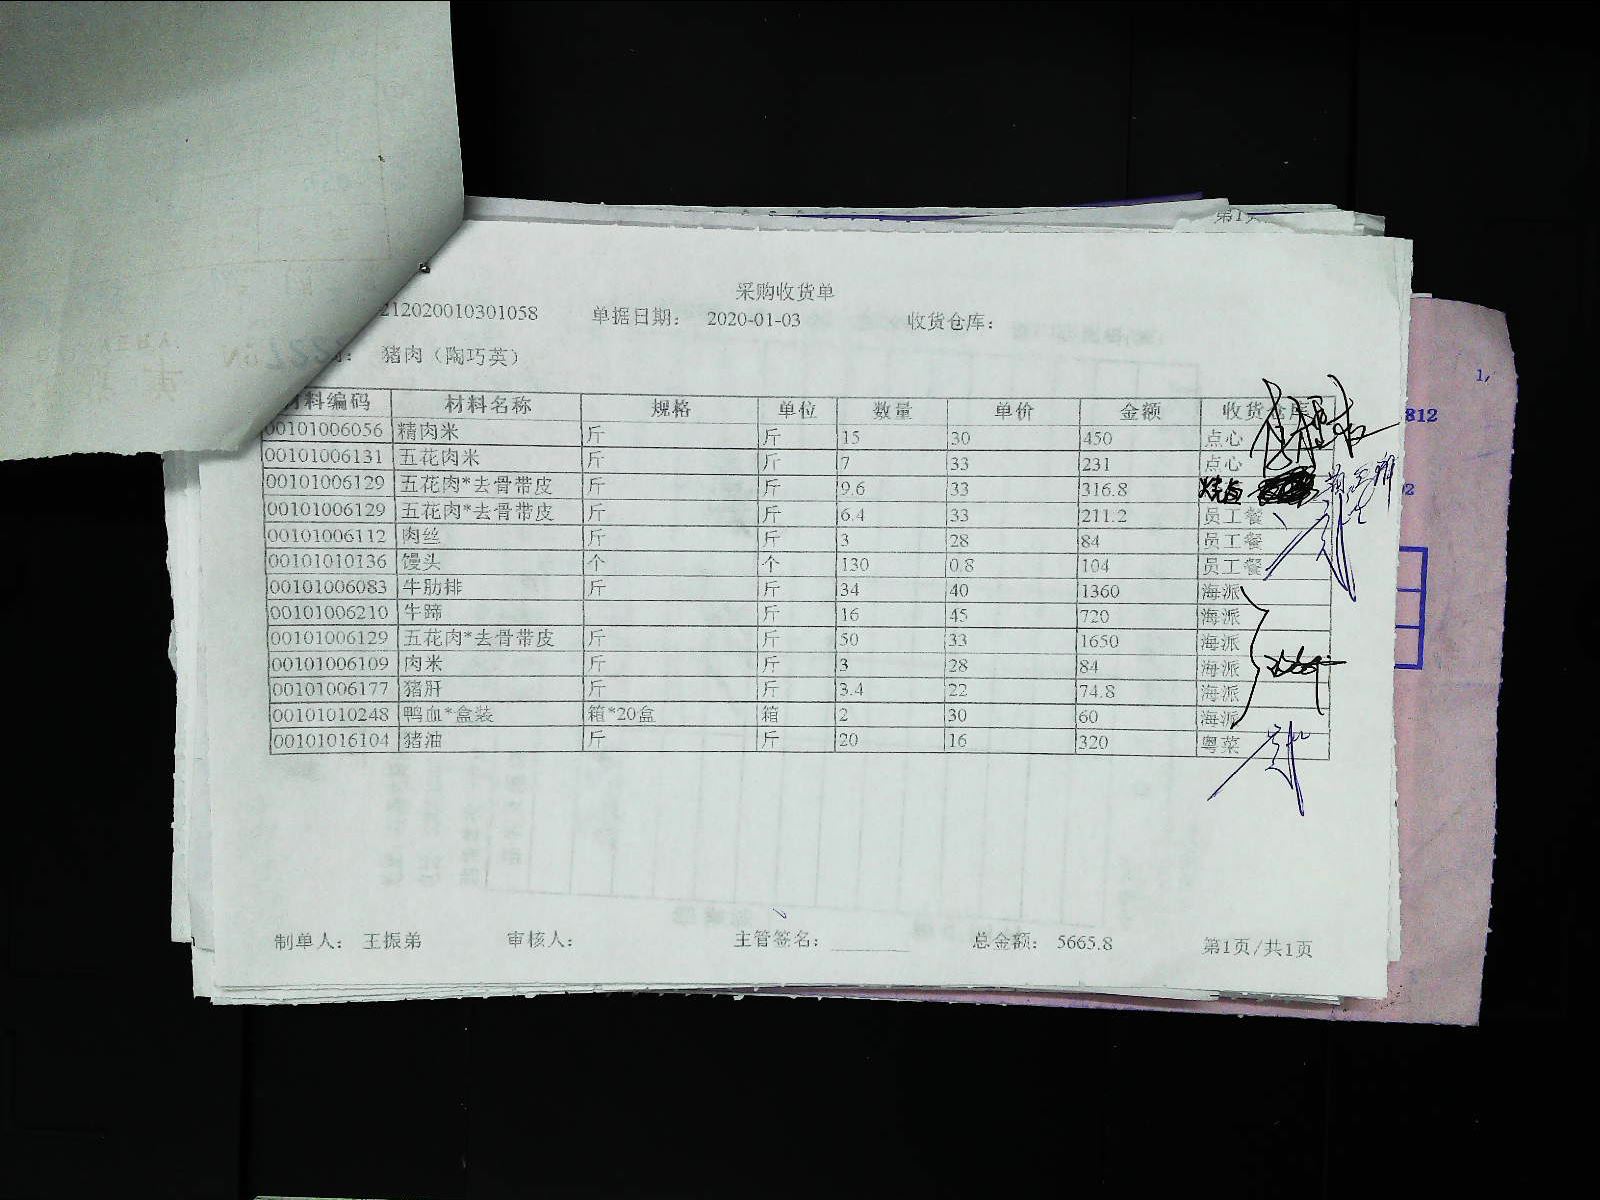 第1页
采购收货单
212020010301058 单据日期： 2020-01-03 收货仓库：
猪肉（陶巧英）
材料编码 材料名称 规格 单位 数量 单价 金额 收货仓库
00101006056 精肉米 斤 斤 15 30 450 点心
00101006131 五花肉米 斤 斤 7 33 231 点心
00101006129 五花肉*去骨带皮 斤 斤 9.6 33 316.8 烧卤
00101006129 五花肉*去骨带皮 斤 斤 6.4 33 211.2 员工餐
00101006112 肉丝 斤 斤 3 28 84 员工餐
00101010136 馒头 个 个 130 0.8 104 员工餐
00101006083 牛肋排 斤 斤 34 40 1360 海派
00101006210 牛蹄 斤 16 45 720 海派
00101006129 五花肉*去骨带皮 斤 斤 50 33 1650 海派
00101006109 肉米 斤 斤 3 28 84 海派
00101006177 猪肝 斤 斤 3.4 22 74.8 海派
00101010248 鸭血*盒装 箱*20盒 箱 2 30 60 海派
00101016104 猪油 斤 斤 20 16 320 粤菜
制单人： 王振弟 审核人： 主管签名： 总金额： 5665.8 第1页/共1页
812